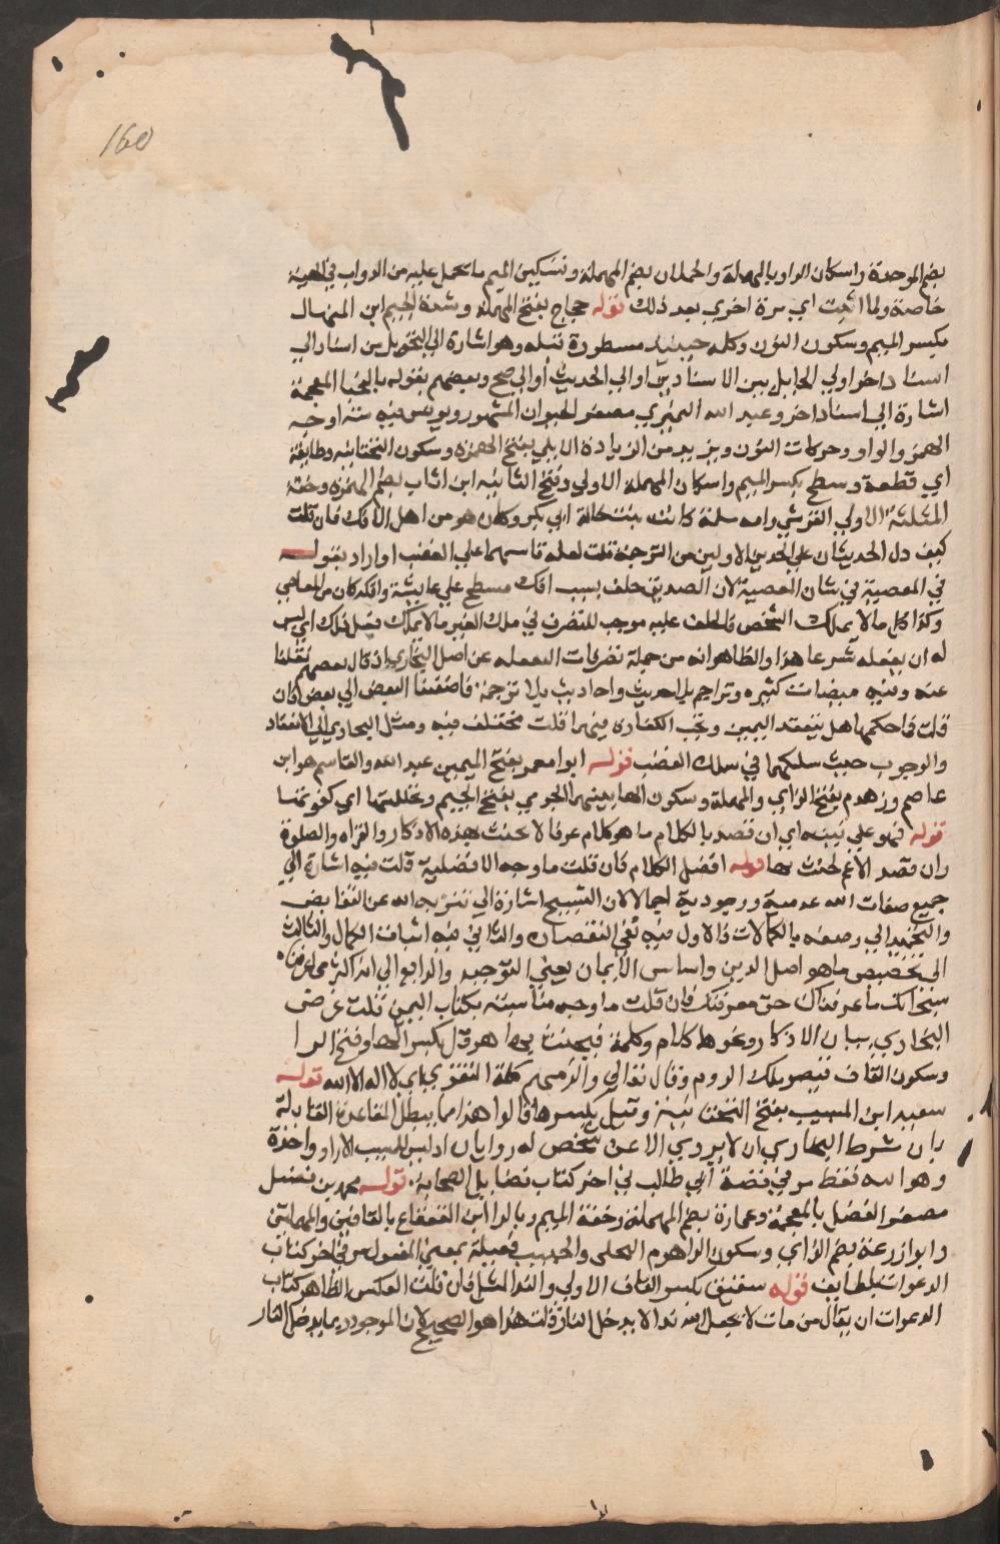 160
بضم الموحدة واسكان الواو بالمهملة والحملان بضم المهملة وتسكين الميم ما يحمل عليه من الدواب في الهبة
خاصة ولما اثبت اي مرة اخرى بعد ذلك قوله حجاج بفتح المهملة وشدة الجيم ابن المنهال
بكسر الميم وسكون النون وكلمة ح مسطورة قبله وهو اشارة الى التحويل من اسناد الى
اسناد اخر او لي الحايل بين الاسنادين او الى الحديث او الى صح وبعضهم يقوله بالخا المعجمة
اشارة الى اسناد اخر وعبد الله النميري مصغر الحيوان المشهور ويونس فيه ستة اوجه
الهمز والواو وحركات النون ويزيد من الزيادة الايلي بفتح الهمزة وسكون التحتانية وطايفة
اي قطعة ومسطح بكسر الميم واسكان المهملة الاولي وفتح الثانيه ابن اثاث بضم الهمزة وخفة
المثلثة الاولي القرشي وامه سلمة كانت بنت خالة ابي بكر وكان هو من اهل الافك فان قلت
كيف دل الحديثان علي الجزين الاولين من الترجمة قلت لعله قاسهما علي الغضب او اراد بقوله
في المعصية في شان المعصية لان الصديق حلف بسبب افك مسطح علي عايشة والافك كان من المعاصي
وكذا كل ما لا يملك الشخص فالحلف عليه موجب للتصرف في ملك الغير ما لا يملك قبل ذلك اي ليس
له ان يفعله شرعا هذا والظاهر انه من جملة تصرفات النقلة عن اصل البخاري اذ قال بعضهم نقلنا
عنه وفيه مبيضات كثيره وتراجم بلا حديث واحاديث بلا ترجمة فاضفنا البعض الي بعض فان
قلت فما حكمها هل ينعقد اليمين وتجب الكفارة فيهما قلت مختلف فيه وميل البخاري الي الانعقاد
والوجوب حيث سلكهما في سلك الغضب قوله ابو معمر بفتح الميمين عبد الله والقاسم هو ابن
عاصم وزهدم بفتح الزاي والمهملة وسكون الها بينهما الجرمي بفتح الجيم وتحللتها اي كفرتها
قوله فهو علي نيته اي ان قصد بالكلام ما هو كلام عرفا لا يحنث بهذه الاذكار والقراه والصلوة
وان قصد الاعم يحنث بها قوله افضل الكلام فان قلت ما وجه الافضلية قلت فيه اشارة الي
جميع صفات الله عدمية ووجودية اجمالا لان التسبيح اشارة الي تنزيه الله عن النقايص
والتحميد الي وصفه بالكمالات فالاول فيه نفي النقصان والثاني فيه اثبات الكمال والثالث
الي تخصيص ما هو اصل الدين واساس الايمان يعني التوحيد والرابع الي انه اكبر مما عرفناه
سبحانك ما عرفناك حق معرفتك فان قلت ما وجه مناسبته بكتاب اليمين قلت غرض
البخاري بيان الاذكار ونحوها كلام وكلمة فيحنث بها هرقل بكسر الها وفتح الرا
وسكون القاف قيصر ملك الروم وقال تعالي والزمهم كلمة التقوى اي لا اله الا الله قوله
سعيد ابن المسيب بفتح التحتانية وقيل بكسرها قالوا هذا مما يبطل القاعدة القايلة
بان شرط البخاري ان لا يروي الا عن شخص له راويان اذ ليس للمسيب الا راو واحد
وهو ابنه فقط مر في قصة ابي طالب في اخر كتاب فضايل الصحابة قوله محمد بن فضيل
مصغر الفضل بالمعجمة وعمارة بضم المهملة وخفة الميم وبالرا ابن القعقاع بالقافين والمهملتين
وابو زرعة بضم الزاي وسكون الرا هرم البجلي والحبيب فعيلة بمعني المفعول مر في اخر كتاب
الدعوات بلطايف قوله سفيق بكسر القاف الاولي والند المثل فان قلت العكس الظاهر كتاب
الدعوات ان يقال من مات لا يجعل لله ندا لا يدخل النار قلت هذا هو الصحيح لان الموجود ربما يدخل النار